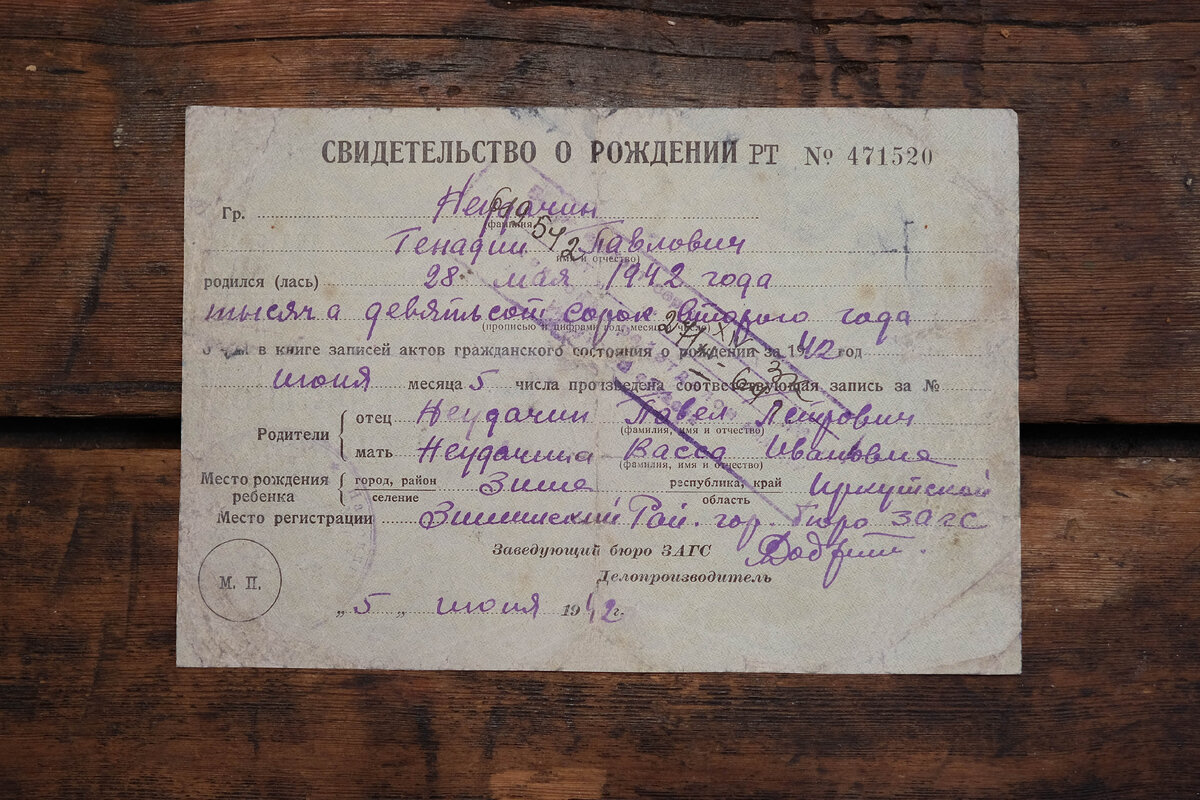 СВИДЕТЕЛЬСТВО О РОЖДЕНИИ РТ № 471520
Гр. Неудачин
(фамилия)
Генадий Павлович
(имя и отчество)
родился (лась) 28 мая 1942 года
тысяча девятьсот сорок второго года
(прописью и цифрами год, месяц и число)
о чем в книге записей актов гражданского состояния о рождении за 1942 год
июня месяца 5 числа произведена соответствующая запись за №
Родители
отец Неудачин Павел Петрович
(фамилия, имя и отчество)
мать Неудачина Васса Ивановна
(фамилия, имя и отчество)
Место рождения ребенка город, район селение Зима республика, край область Иркутской
Место регистрации Зиминский Рай. гор. бюро ЗАГС
Заведующий бюро ЗАГС
Делопроизводитель
М. П.
„ 5 „ июня 1942 г.